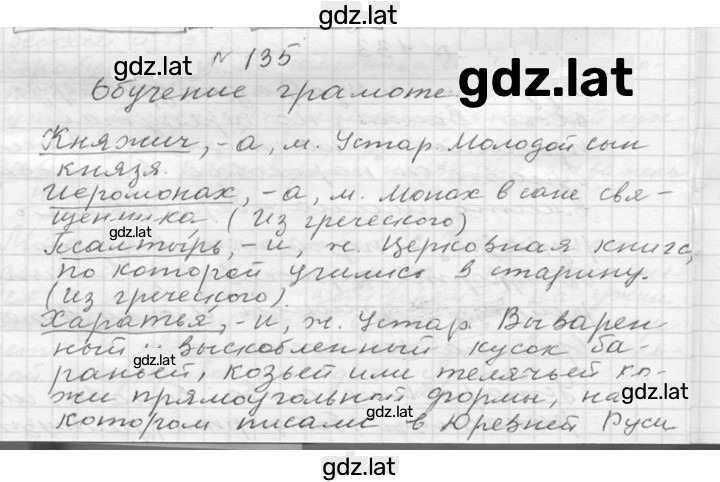 gdz.lat
№ 135
gdz.lat
gdz.lat
Обучение грамоте
Княжич, -а, м. Устар. Молодой сын
князя.
Иеромонах, -а, м. Монах в сане свя-
щенника. (Из греческого)
gdz.lat
Псалтырь, -и, ж. Церковная книга,
по которой учились в старину.
(Из греческого).
Харатья́, -и, ж. Устар. Выварен
ный и выскобленный кусок ба-
gdz.lat
раньей, козьей или телячьей ко-
жи прямоугольной формы, на
gdz.lat
котором писали в Древней Руси
gdz.lat